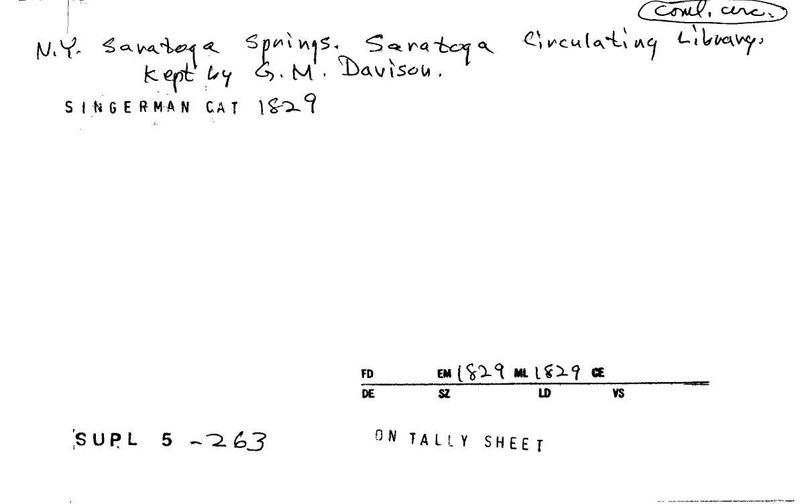 coml. circ.
N.Y. Saratoga Springs. Saratoga Circulating Library.
Kept by G. M. Davison.
SINGERMAN CAT 1829
FD EM 1829 ML 1829 CE
DE SZ LD VS
SUPL 5 -263
ON TALLY SHEET